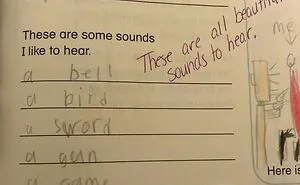 These are some sounds
I like to hear.
These are all beautiful
sounds to hear.
me
a bell
a bird
a sword
a gun
a game
Here is